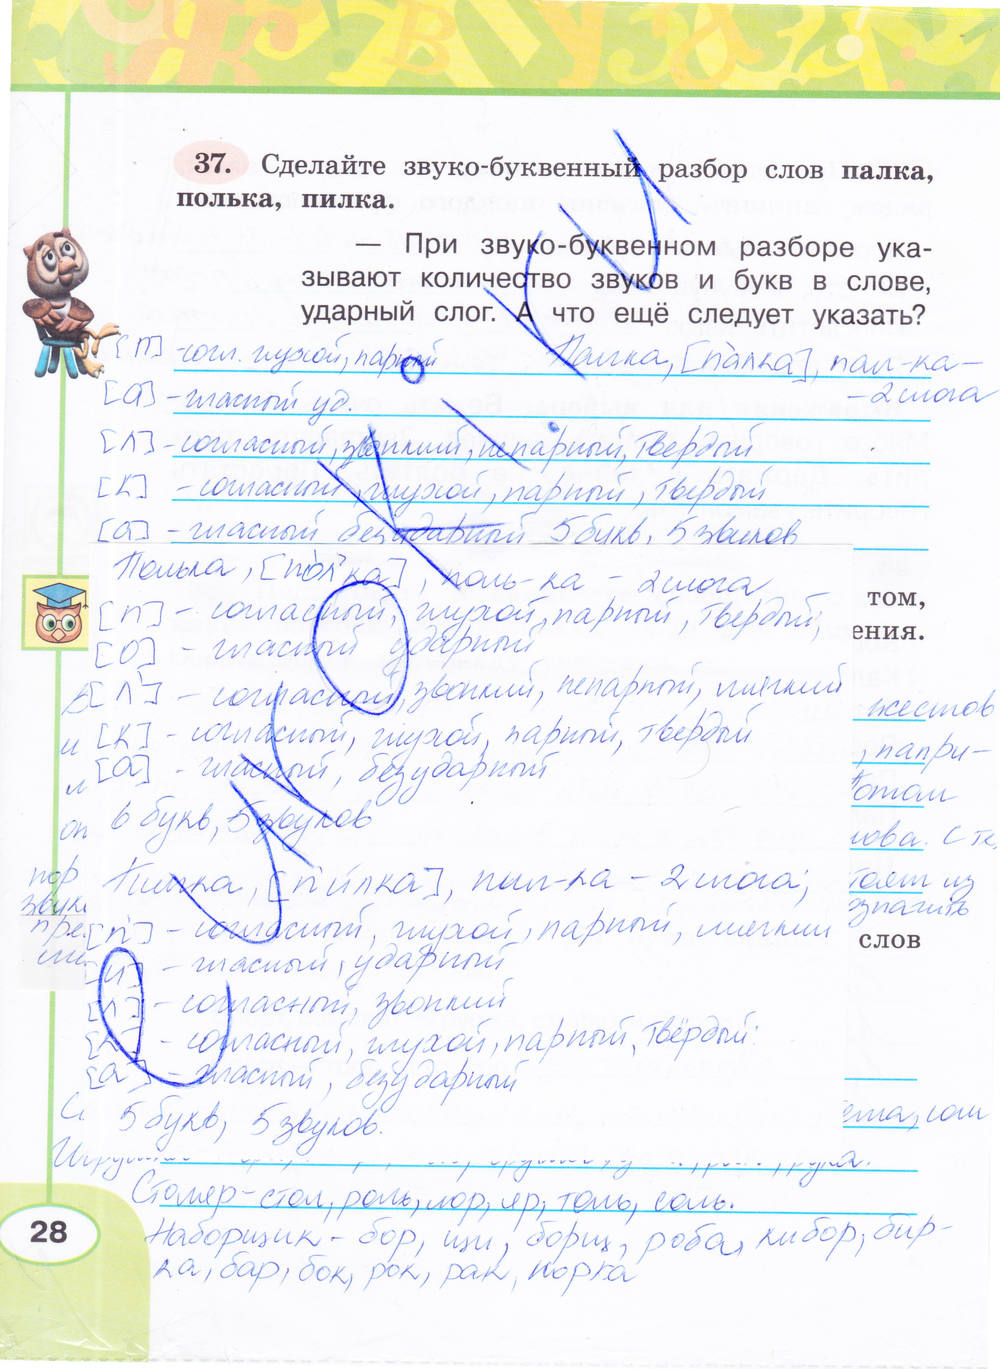 37. Сделайте звуко-буквенный разбор слов палка,
полька, пилка.
— При звуко-буквенном разборе ука-
зывают количество звуков и букв в слове,
ударный слог. А что ещё следует указать?
[п] - согл. глухой, парный Палка, [палка], пал-ка -
[а] - гласный уд. - 2 слога
[л] - согласный, звонкий, непарный, твердый
[к] - согласный, глухой, парный, твердый
[а] - гласный безударный 5 букв, 5 звуков
Полька, [пол'ка], поль-ка - 2 слога
том,
[п] - согласный, глухой, парный, твердый;
ения.
[о] - гласный ударный
[л'] - согласный звонкий, непарный, мягкий
жестов
и [к] - согласный, глухой, парный, твердый
, напри-
[а] - гласный, безударный
потом
оп 6 букв, 5 звуков
лова. С те,
пор Пилка, [п'илка], пил-ка - 2 слога;
тоят из
звук
означить
пре [п'] - согласный, глухой, парный, мягкий
слов
[и] - гласный, ударный
[л] - согласный, звонкий
[к] - согласный, глухой, парный, твёрдый:
[а] - гласный, безударный
5 букв, 5 звуков.
ема, сом
Столяр - стол, роль, лор, яр, толь, соль.
28
Наборщик - бор, щи, борщ, роба, набор, бир-
ка, бар, бок, рок, рак, норка
СПИШИ.РУ